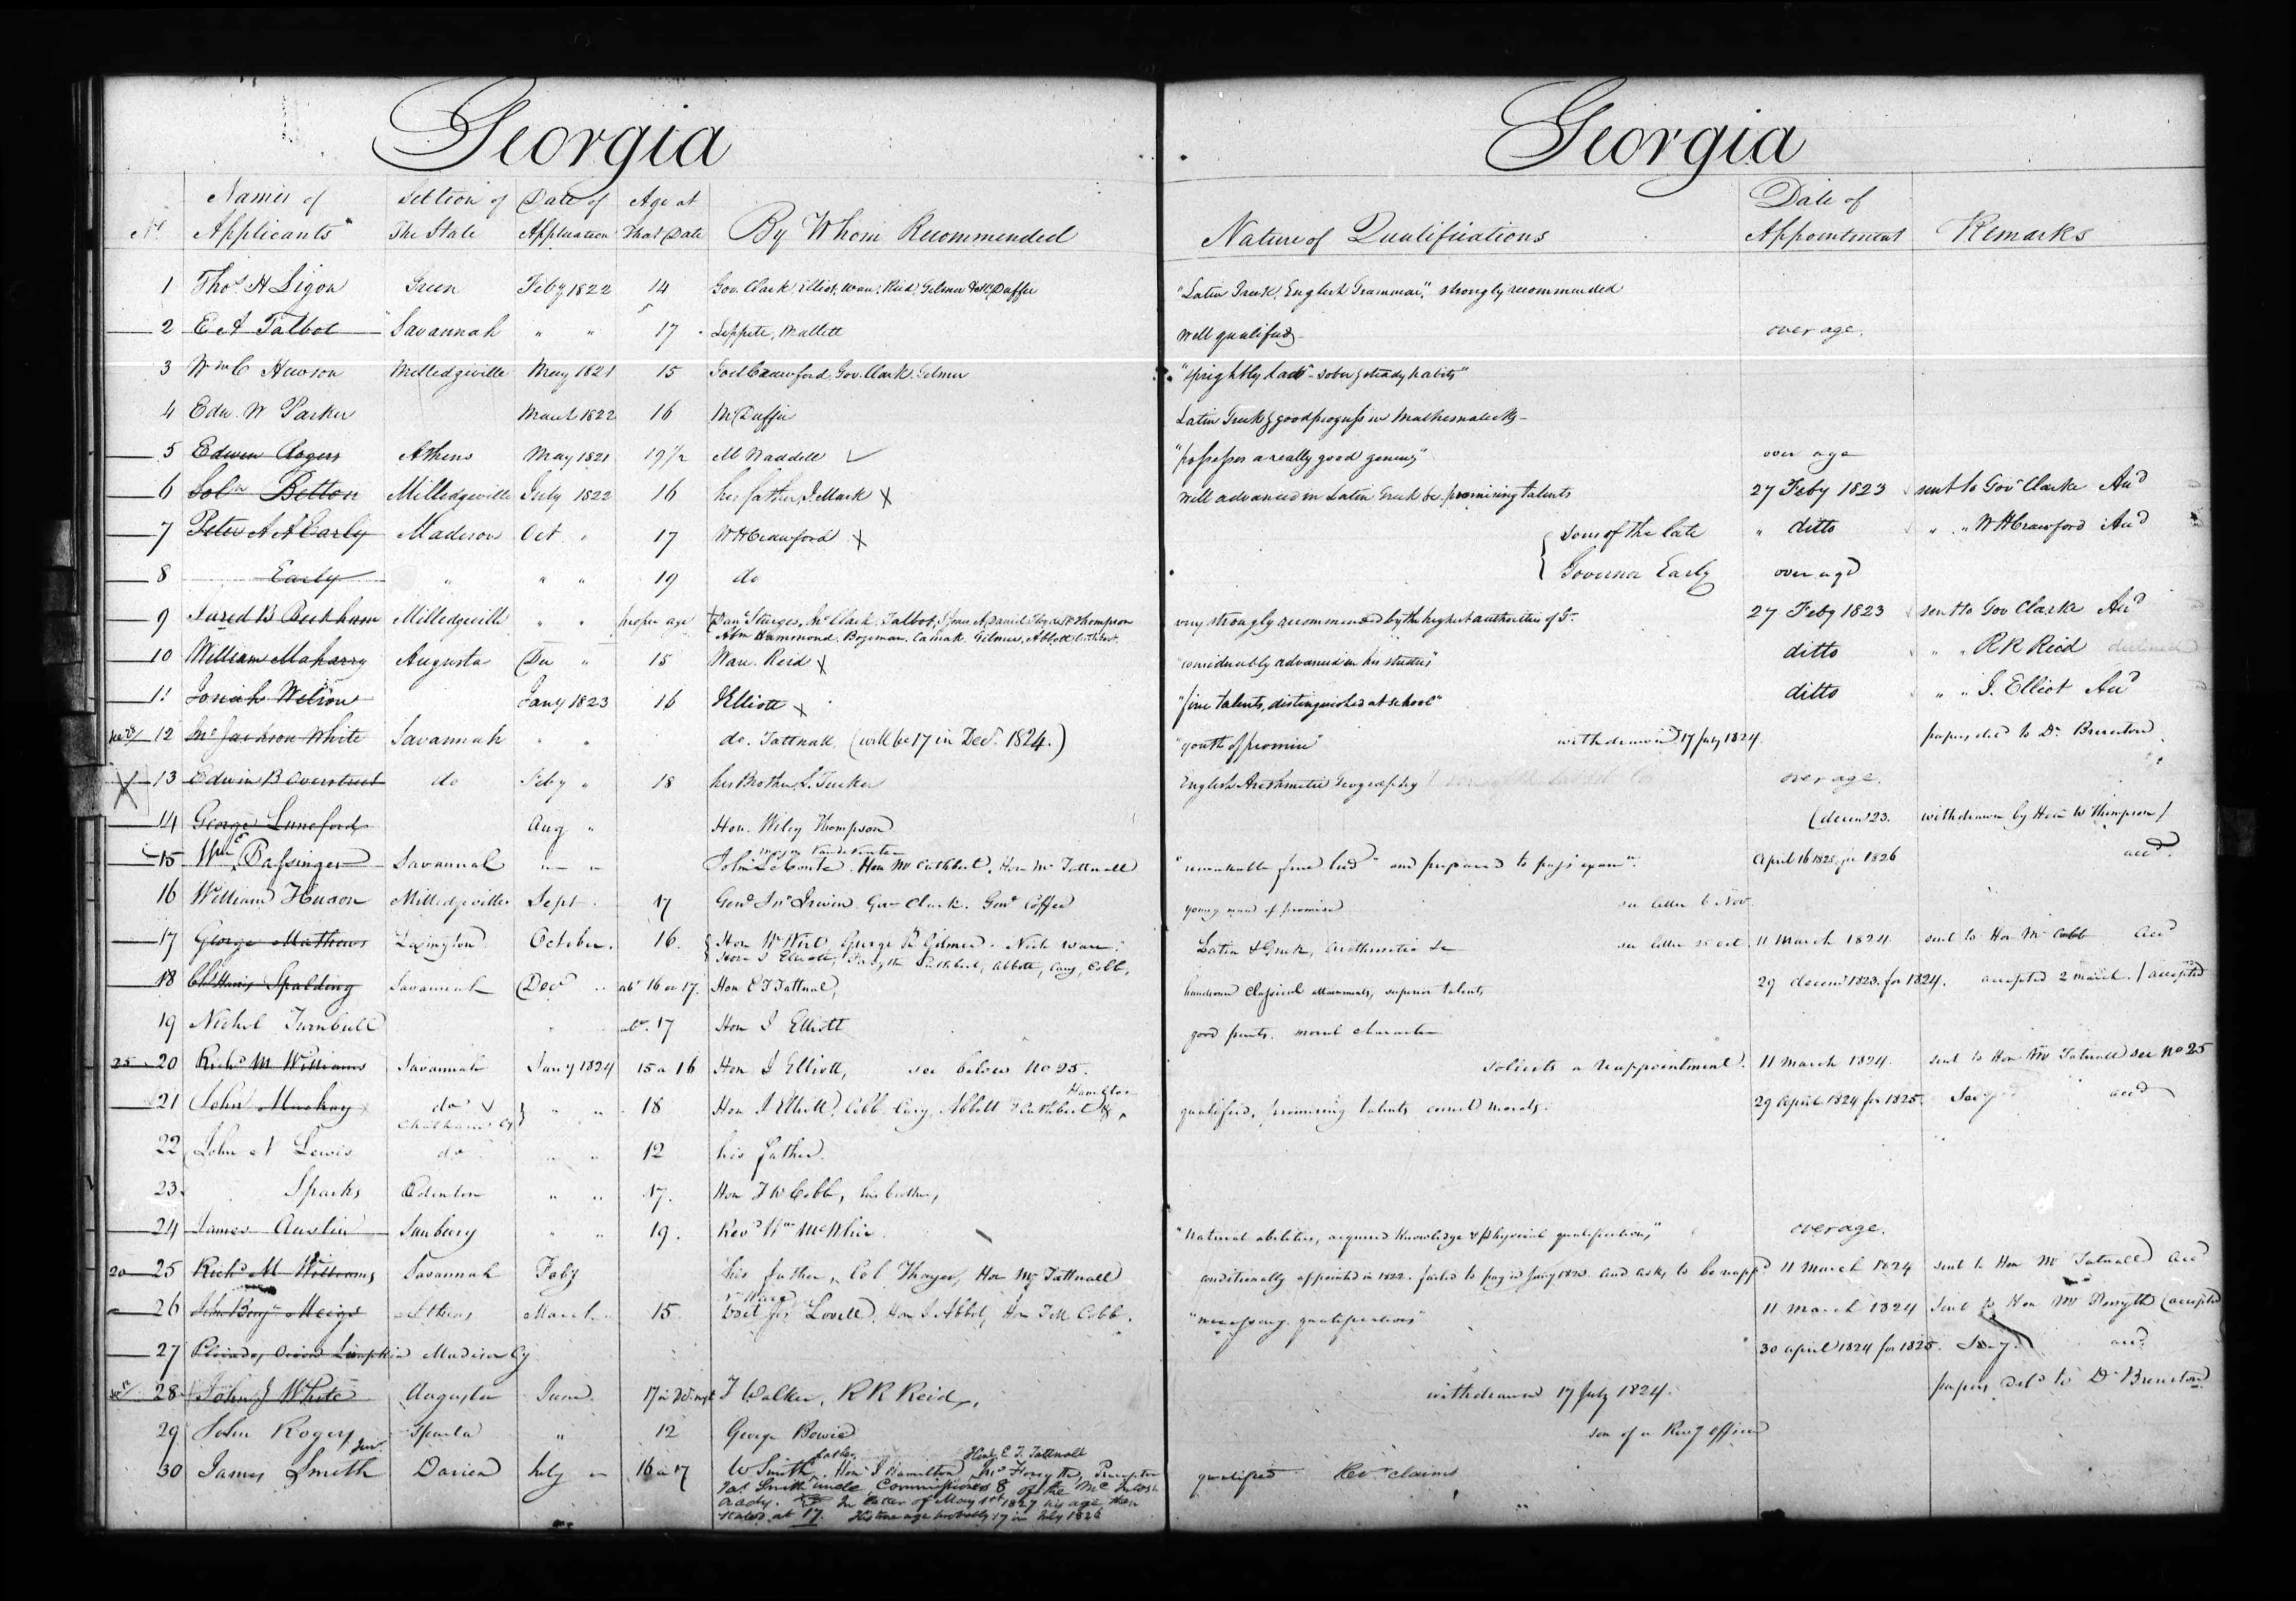 Georgia
Georgia
No Names of Applicants Section of The State Date of Application Age at That Date By Whom Recommended Nature of Qualifications Date of Appointment Remarks
1 Thos H Ligon Green Feby 1822 14 Gov. Clark, Elliot, Ware, Reid, Gilmer & McDuffie "Latin Greek, English Grammar", strongly recommended
2 E A Talbot Savannah " " 17 Mallett well qualified over age.
3 Wm C Hewson Milledgeville May 1821 15 Joel Crawford, Gov. Clark, Gilmer "sprightly lad" - sober & steady habits"
4 Edw. W Parker March 1822 16 McDuffie Latin Greek & good progress in Mathematicks -
5 Edwin Rogers Athens May 1821 19 1/2 M Waddell "possesses a really good genius" over age
6 Soln Betton Milledgeville July 1822 16 his father, J. Mark X well advanced in Latin Greek &c. promising talents 27 Feby 1823 sent to Gov Clarke Acd
7 Peter A A Early Madison Oct " 17 W H Crawford X { sons of the late " ditto " " W H Crawford Acd
8 Early " " " 19 do Governor Early over age
9 Jared B Beckham Milledgeville " " proper age Danl Sturges, Clark, Talbot, Thompson very strongly recommended by the highest authorities of G- 27 Feby 1823 sent to Gov Clark Acd
Hammond, Bozeman, Camak, Gilmer, Abbott, Cuthbert
10 William Maharry Augusta Dec " 15 Ware. Reid X "considerably advanced in his studies" ditto " " R R Reid declined
11 Josiah Wilson Jany 1823 16 Elliott X "fine talents, distinguished at school" ditto " " J. Elliot Acd
12 Jno Jackson White Savannah " " do. Tattnall (will be 17 in Decr. 1824.) "youth of promise" withdrawn 17 July 1824. papers deld to Dr. Brereton
13 Edwin B Overstreet do Feby " 18 his Brother, S. Tucker English Arithmetic Geography over age.
14 George Lunsford Aug " Hon. Wiley Thompson (decem 23. withdrawn by Hon W Thompson)
15 Wm Bassinger Savannah " " John LeConte. Hon Mr Cuthbert. Hon Mr Tattnall "remarkable fine lad" and prepared to pass exam". April 16 1825, for 1826 accd.
16 William Huson Milledgeville Sept 17 Genl Jno Irwin Gov Clark. Genl Coffee young man of promise see letter 6 Nov
17 George Mathews Lexington October. 16. { Hon W Wirt, George R Gilmer. Nich Ware. Latin & Greek, arithmetic &c see letter 25 oct 11 March 1824 sent to Hon Mr Cobb Accd
Hon J Elliott, Forsyth Cuthbert, Abbott, Cary, Cobb,
18 Chs Harris Spalding Savannah Decr " abt 16 or 17. Hon E F Tattnal, handsome Classical attainments, superior talents 29 decem 1823. for 1824. accepted 2 march. / accepted
19 Nichol Turnbull " " abt. 17 Hon J Elliott good parts. moral character
25 20 Richd M Williams Savannah Jany 1824 15 a 16 Hon J Elliott, see below No 25. solicits a reappointment. 11 March 1824. sent to Hon Mr Tatnall see No 25
21 John Mackay do Chatham Cy } " " 18 Hon J Elliott, Cobb, Cary, Abbott & Cuthbert & Hamilton qualified, promising talents correct morals. 29 April 1824 for 1825. accd
22 John N Lewis do " " 12 his father.
23. Sparks Edenton " " 17. Hon T W Cobb, his brother,
24 James Austin Sunbury " " 19. Revd Wm McWhir "Natural abilities, acquired Knowledge & physical qualifications" overage.
20 25 Richd M Williams Savannah Feby his father, Col Thayer, Hon Mr Tattnall conditionally appointed in 1822. failed to pass in Jany 1823. and asks to be reappd 11 March 1824 sent to Hon Mr Tatnall accd
26 John Benjn Meigs Athens March 15 Lovell, Hon J Abbot, Hon T W Cobb. "necessary qualifications" 11 March 1824 sent to Hon Mr Forsyth (accepted
27 Lumpkin Madison Cy 30 April 1824 for 1825. accd.
28 John J White Augusta June 17 in Dec. next F Walker, R R Reid, withdrawn 17 July 1824. papers deld to Dr Brereton
29 John Rogers Sparta " 12 George Bowie son of a Rev'y officer
30 James Smith Junr. Darien July " 16 a 17 W Smith father, Hon J Hamilton, Jno Forsyth, Hon E F Tattnall qualified Revy claims
Jas Smith uncle, Commissioners of the McIntosh
Acady. In letter of May 1st 1827 his age then
stated at 17. His true age probably 17 in July 1826